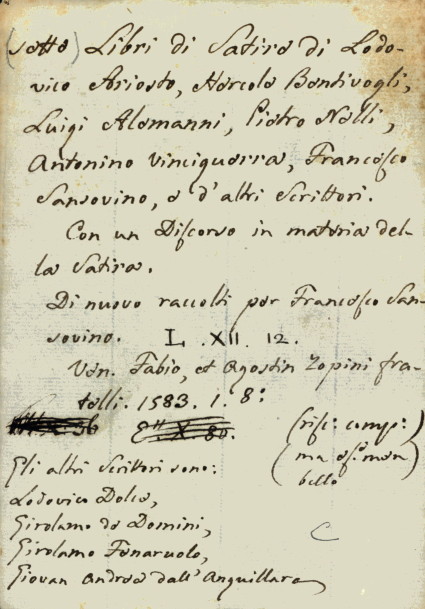 (sette) Libri di Satire di Lodo-
vico Ariosto, Hercole Bentivogli,
Luigi Alemanni, Pietro Nelli,
Antonino Vinciguerra, Francesco
Sansovino, e d'altri Scrittori.
Con un Discorso in materia del-
la Satira.
Di nuovo raccolti per Francesco San-
sovino. L. XII. 12.
Ven. Fabio, et Agostin Zopini fra-
telli. 1583. i. 8:
E. X. 80.
Gli altri Scrittori sono:
(ma es. men
bello)
Lodovico Dolce,
Girolamo de Domini,
Girolamo Fenaruolo,
Giovan Andrea dall'Anguillara
C